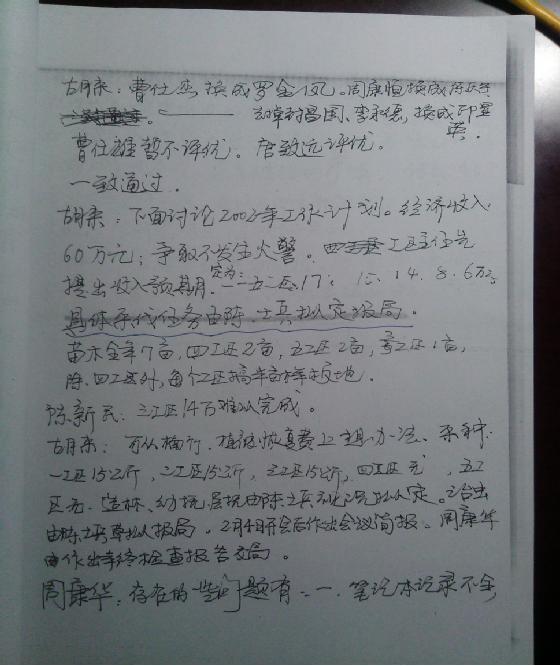 胡来：曹仕杰换成罗金凤。周康恒换成
。去掉封昌国、李永德，换成邵显英。
曹仕雄暂不评优。唐致远评优。
一致通过.
胡来：下面讨论2002年工作计划。经济收入
60万元；争取不发生火警。四五工区主任先
提出收入预期. 定为：一一五工区17；15、14、8、6万元
具体承伐任务由陈士兵拟定报局。
苗木全年7亩，四工区2亩，五工区2亩，工区1亩，
除四工区外，每个工区搞半亩样板地.
陈新民：三工区14万难以完成。
胡来：可从楠竹、植被恢复费上想办法、采种：
一工区15公斤，二工区15公斤，三工区15公斤，四工区无，五工
区无. 造林、幼抚、层抚由陈士兵视情况拟定。
由陈士兵草拟报局. 2月4日开会后作出会议简报。周康华
由作出年终检查报告交局。
周康华：存在的一些问题有：一. 笔记本记录不全